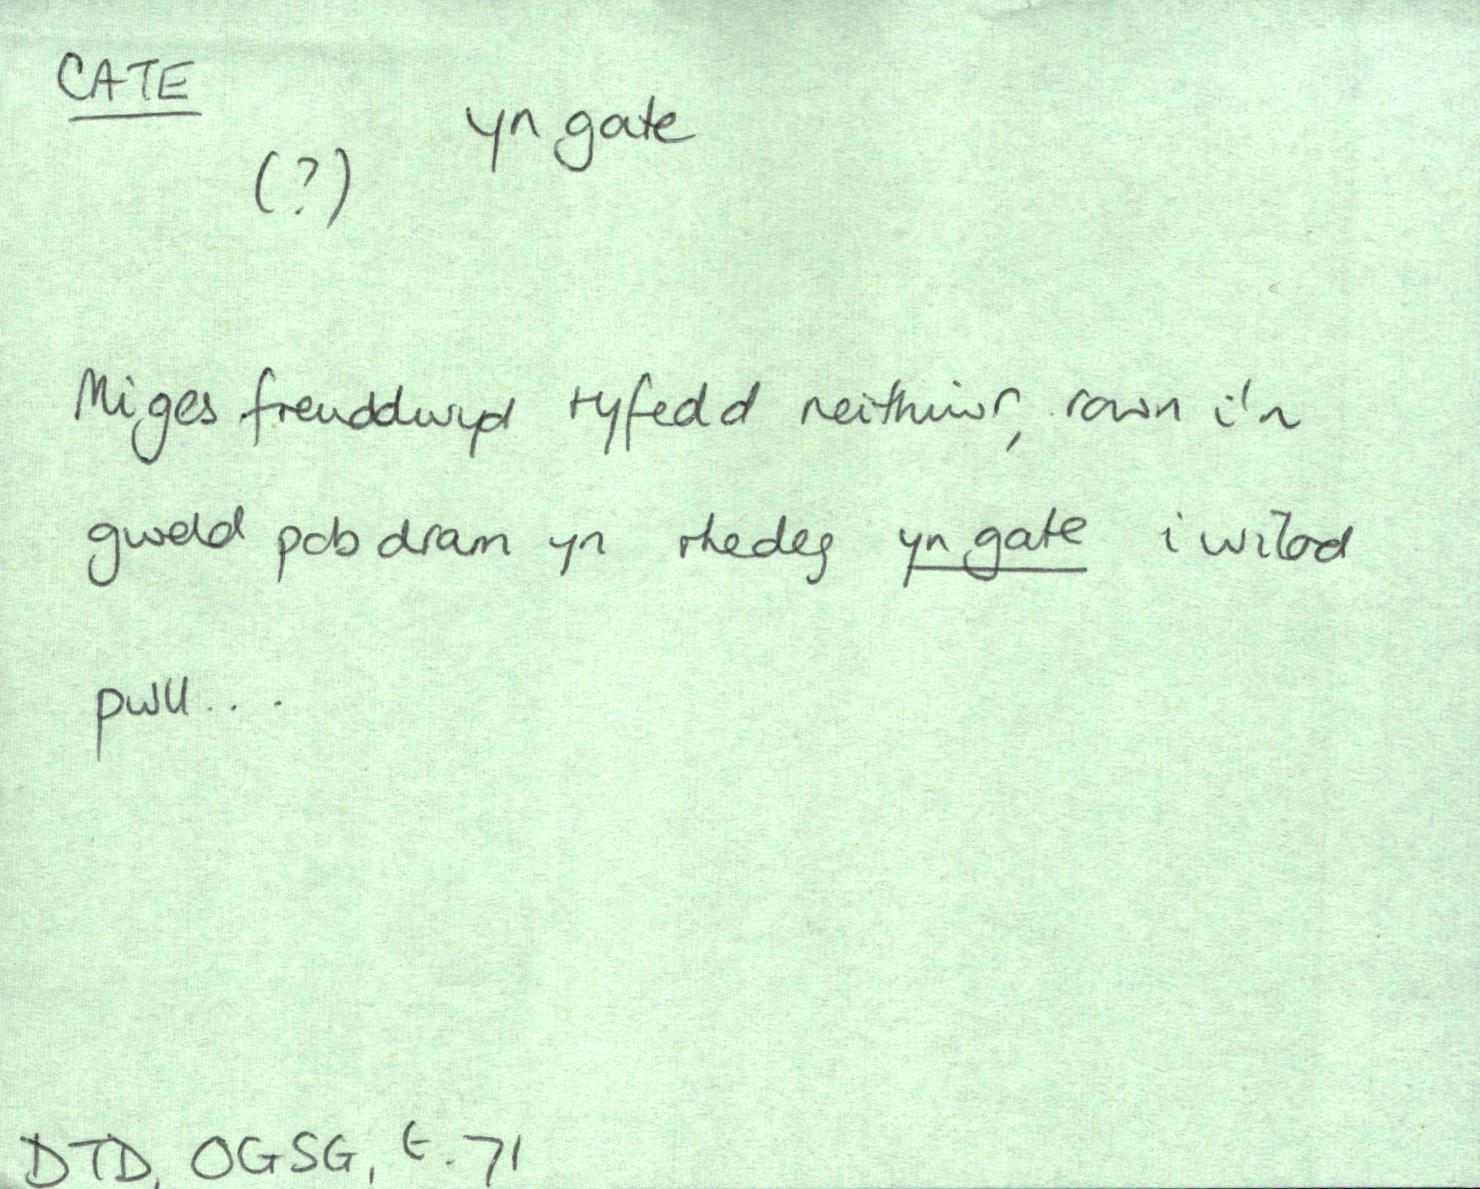 CATE
yn gate
(?)
Mi ges freuddwyd ryfedd neithiwr, rown i'n
gweld pob dram yn rhedeg yn gate i wilod
pwll...
DTD, OGSG, t. 71